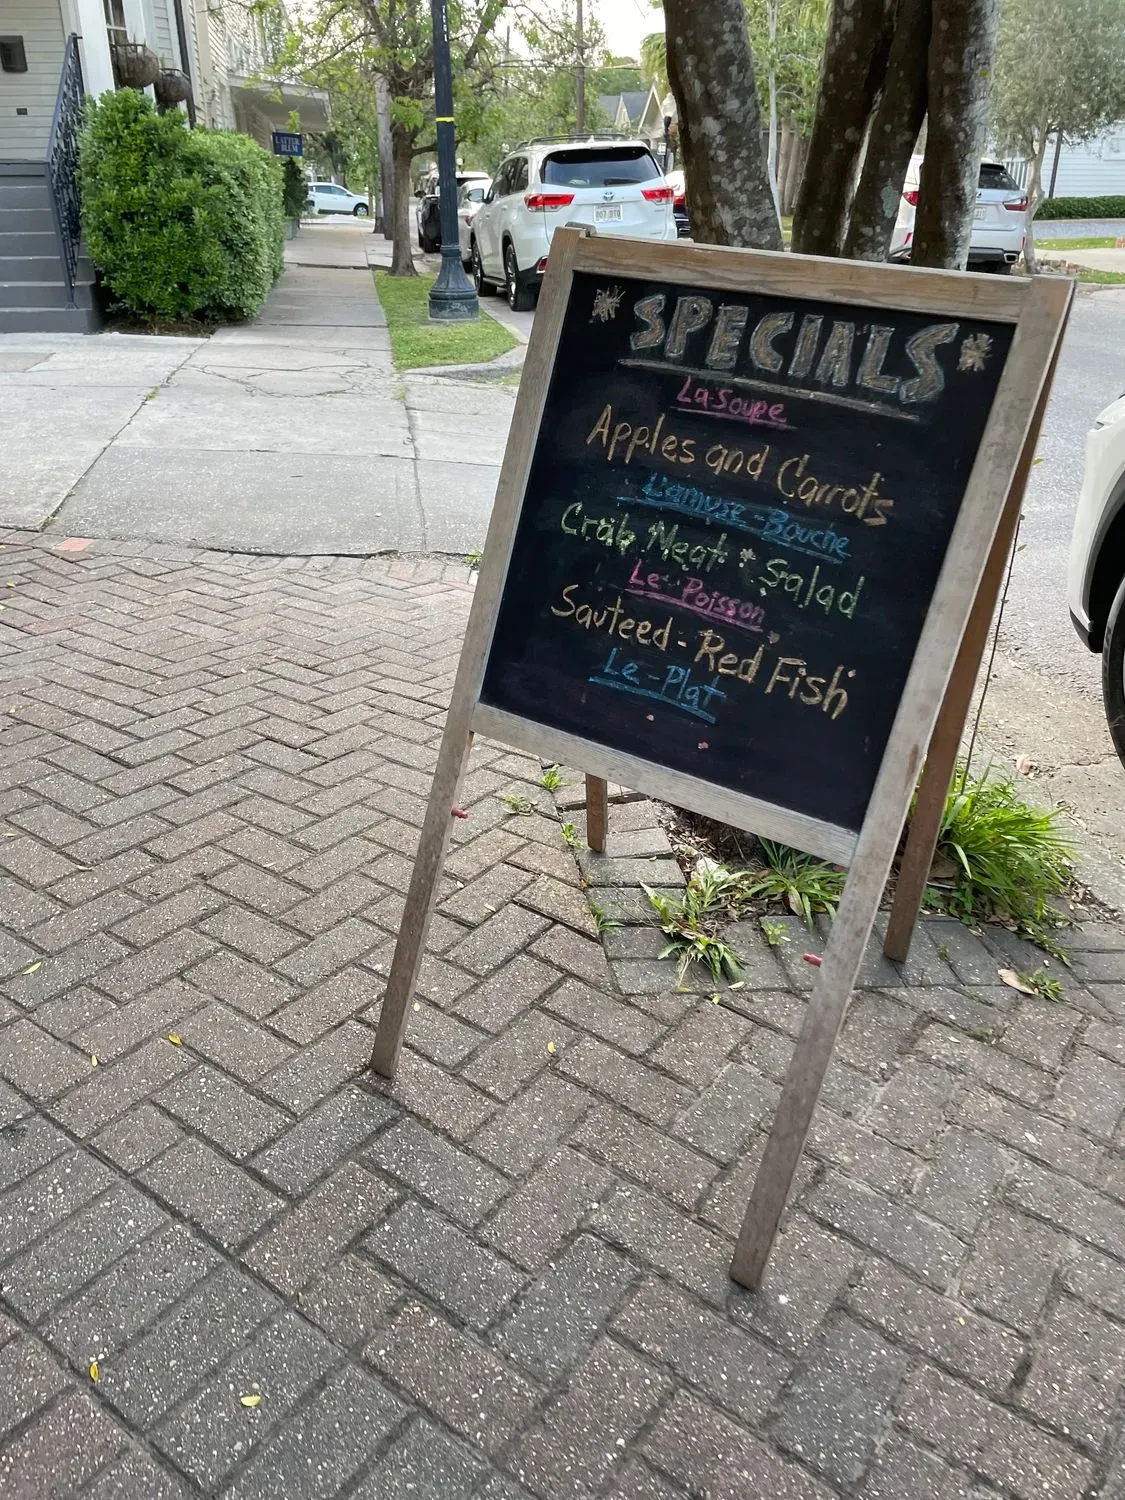 LATTER
BLUM
SPECIALS
La-Soupe
Apples and Carrots
L'amuse-Bouche
Crab Meat Salad
Le-Poisson
Sauteed-Red Fish
Le-Plat